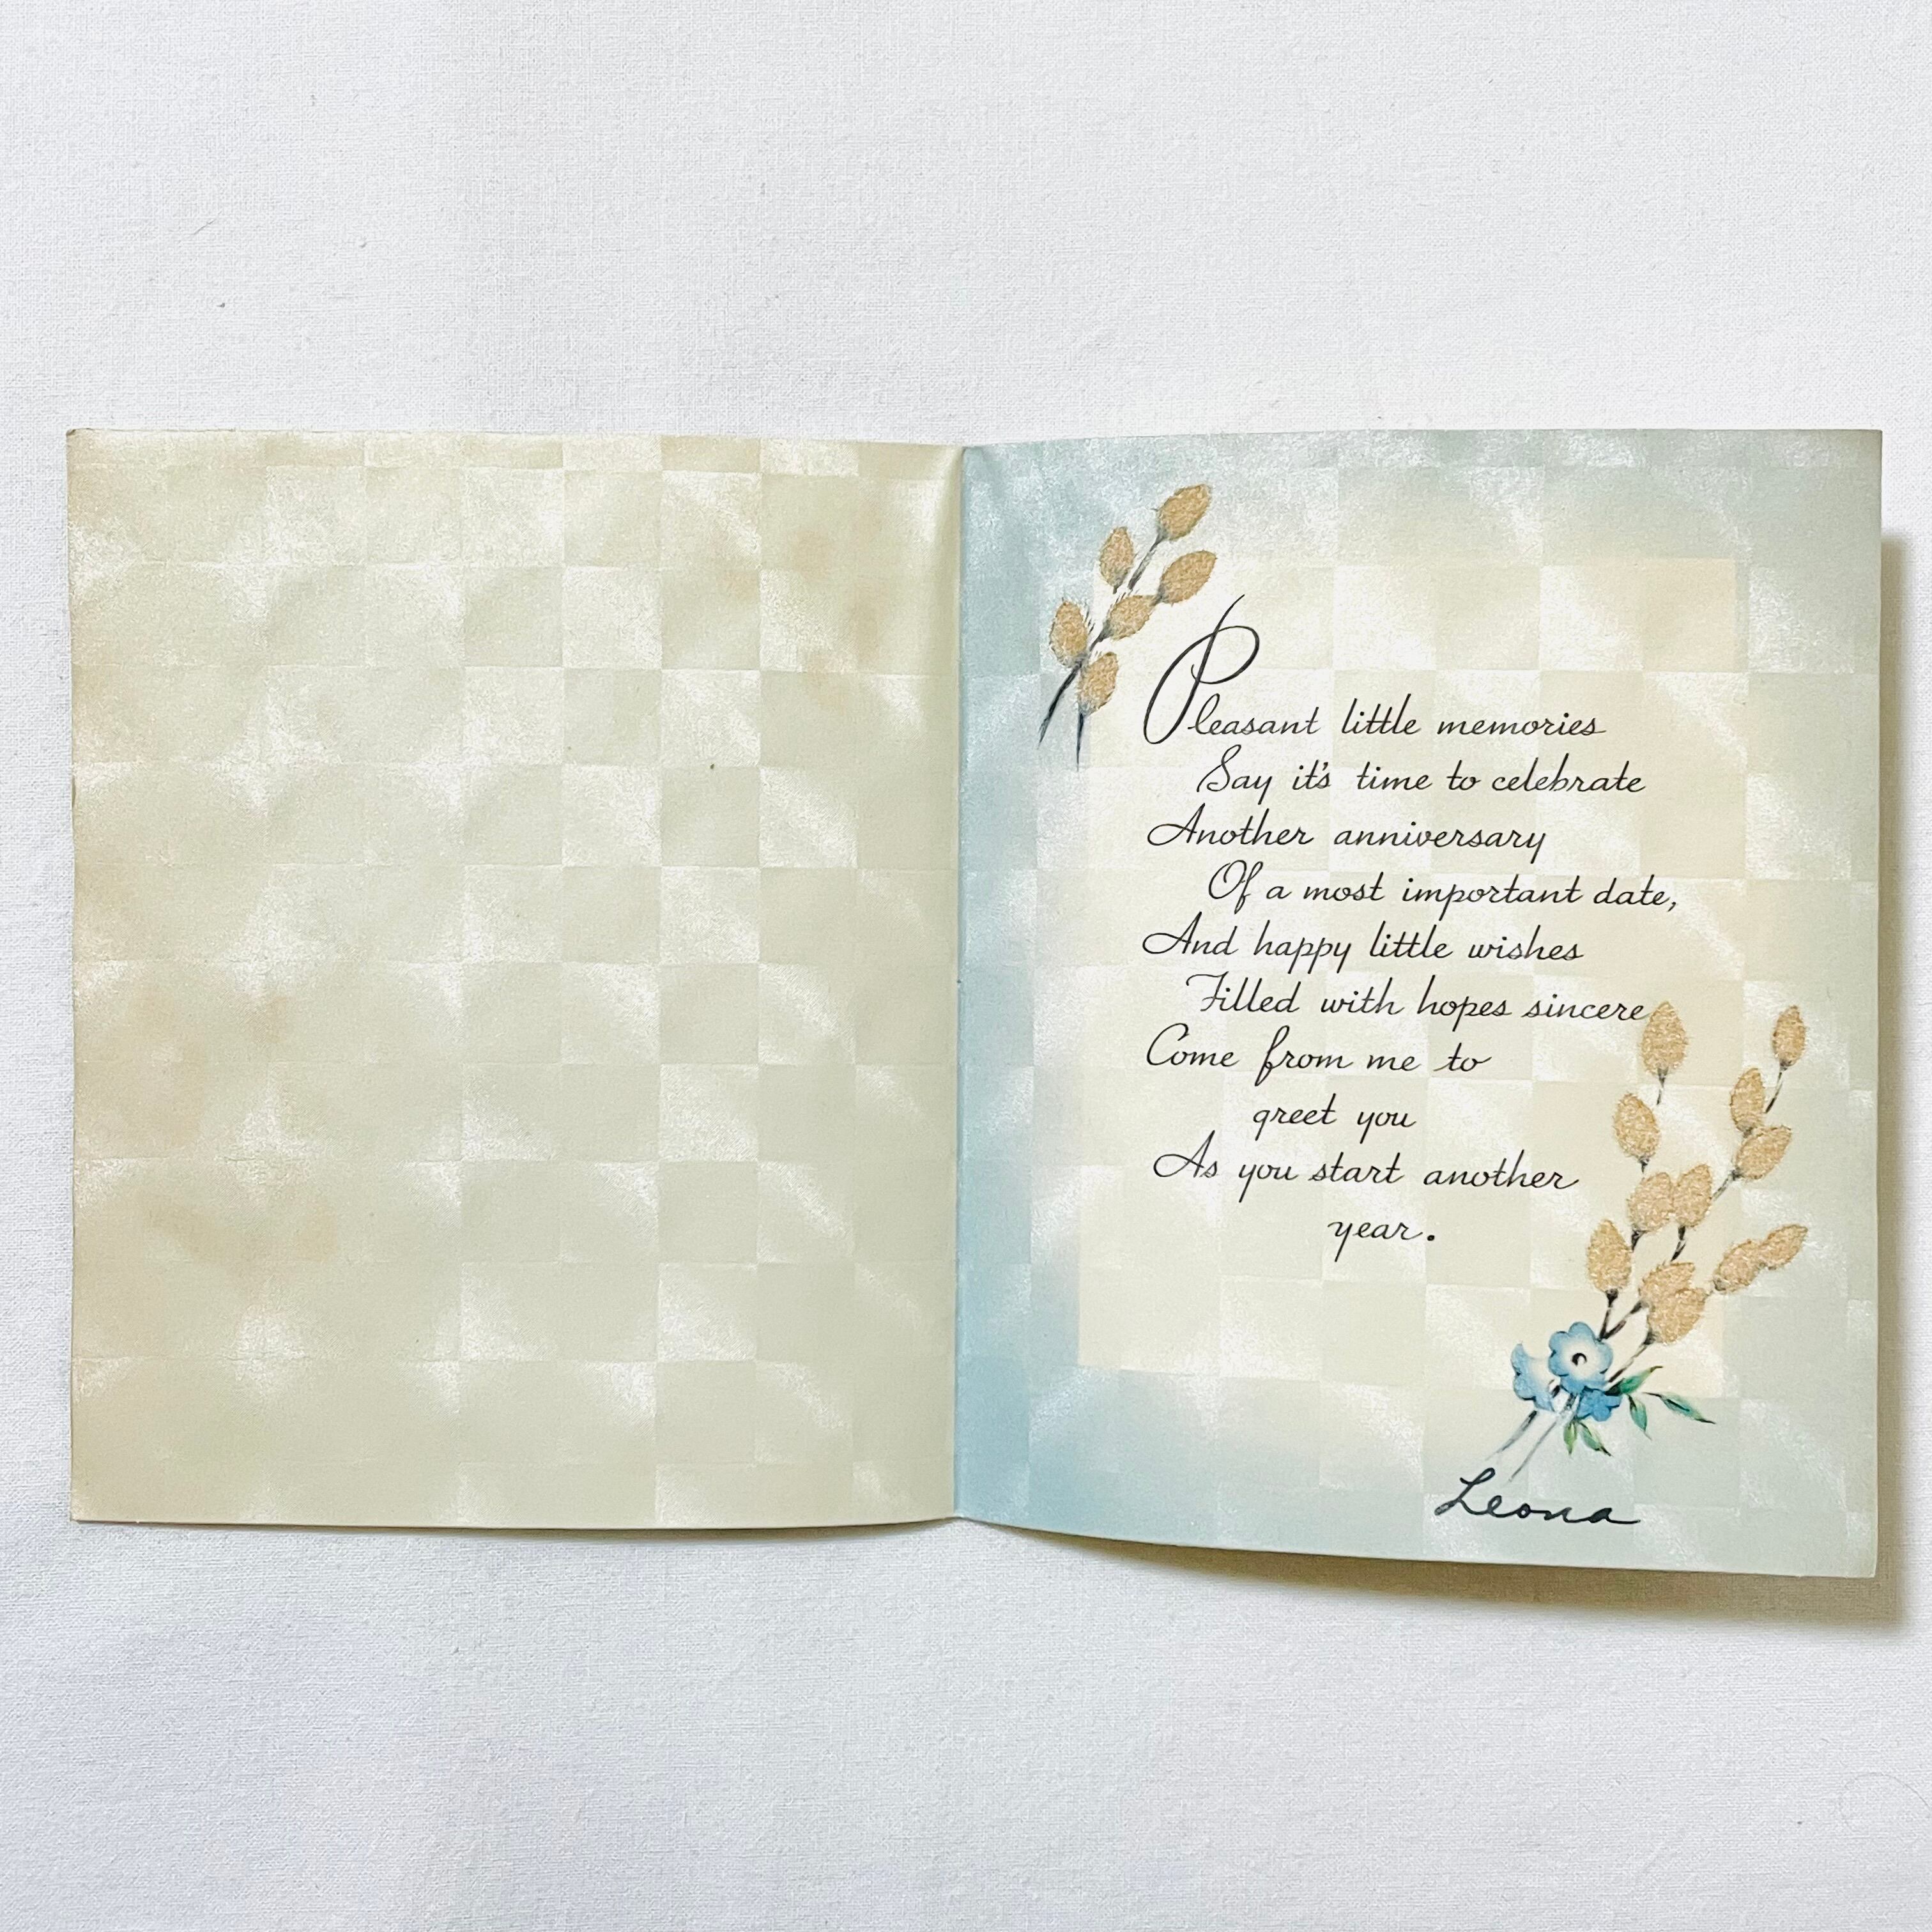 Pleasant little memories
Say it's time to celebrate
Another anniversary
Of a most important date,
And happy little wishes
Filled with hopes sincere
Come from me to
greet you
As you start another
year.
Leona